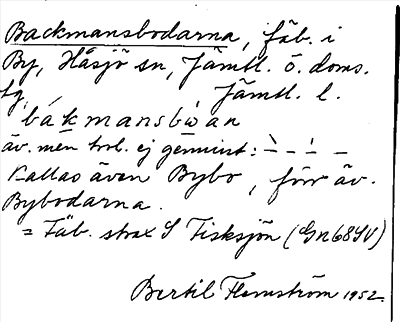 Backmansbodarna, fäb. i
By, Håsjö sn, Jämtl. ö. doms.
tg, Jämtl. l.
bákmansbὼan
äv. men trol. ej genuint: –̀ – –́ –
Kallas även Bybo, förr äv.
Bybodarna.
= Fäb. strax S Fisksjön (Gn68SV)
Bertil Flemström 1952.